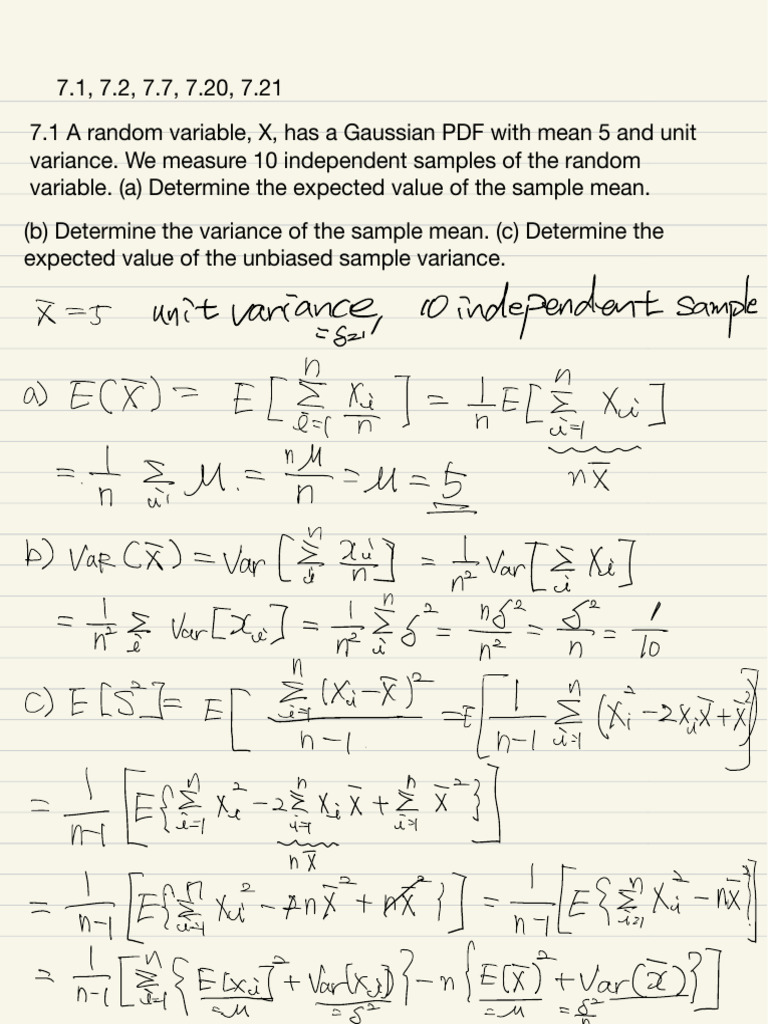 7.1, 7.2, 7.7, 7.20, 7.21
7.1 A random variable, X, has a Gaussian PDF with mean 5 and unit
variance. We measure 10 independent samples of the random
variable. (a) Determine the expected value of the sample mean.
(b) Determine the variance of the sample mean. (c) Determine the
expected value of the unbiased sample variance.
x̄ = 5 unit variance, 10 independent sample
= δ²=1
a) E(X̄) = E[∑_{i=1}^{n} Xi/n] = 1/n E[∑_{i=1}^{n} Xi]
nX̄
= 1/n ∑_i μ = nμ/n = μ = 5
b) VAR(X̄) = Var[∑_i^n xi/n] = 1/n² Var[∑_i Xi]
= 1/n² ∑_i Var[xi] = 1/n² ∑_i^n δ² = nδ²/n² = δ²/n = 1/10
c) E[S²] = E[∑_{i=1}^{n} (Xi-X̄)² / n-1] = E[1/n-1 ∑_{i=1}^{n} (Xi² - 2XiX̄ + X̄²)]
= 1/n-1 [E{∑_{i=1}^{n} Xi² - 2∑_{i=1}^{n} Xi X̄ + ∑_{i=1}^{n} X̄²}]
nX̄
= 1/n-1 [E{∑_{i=1}^{n} Xi² - 2nX̄² + nX̄²}] = 1/n-1 [E{∑_{i=1}^{n} Xi² - nX̄²}]
= 1/n-1 [∑_{i=1}^{n} {E[xi]² + Var(xi)} - n{E(X̄)² + Var(X̄)}]
=μ =δ² =μ =δ²/n